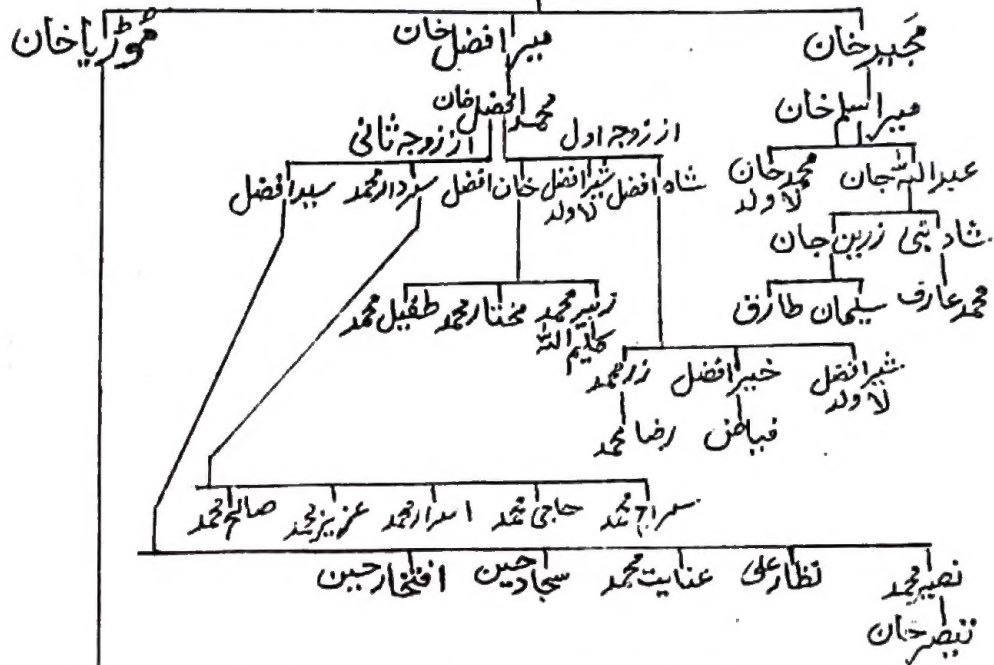 مجیدخان میرافضل خان موڑیاخان
محمدافضل خان میراسلم خان
از زوجہ اول از زوجہ ثانی
عبداللہ جان محمدخان لاولد
شاہ افضل شیرافضل لاولد خان افضل سردارمحمد سیدافضل
شادنبی زرین جان
محمدعارف سلیمان طارق
زبیرمحمد کلیم اللہ مختارمحمد طفیل محمد
شیرافضل لاولد خیبرافضل زرمحمد
فیاض رضامحمد
سراج محمد حاجی محمد اسرارمحمد عزیزمحمد صالح محمد
نصیرمحمد نظارعلی عنایت محمد سجادحسین افتخارحسین
قیصرخان